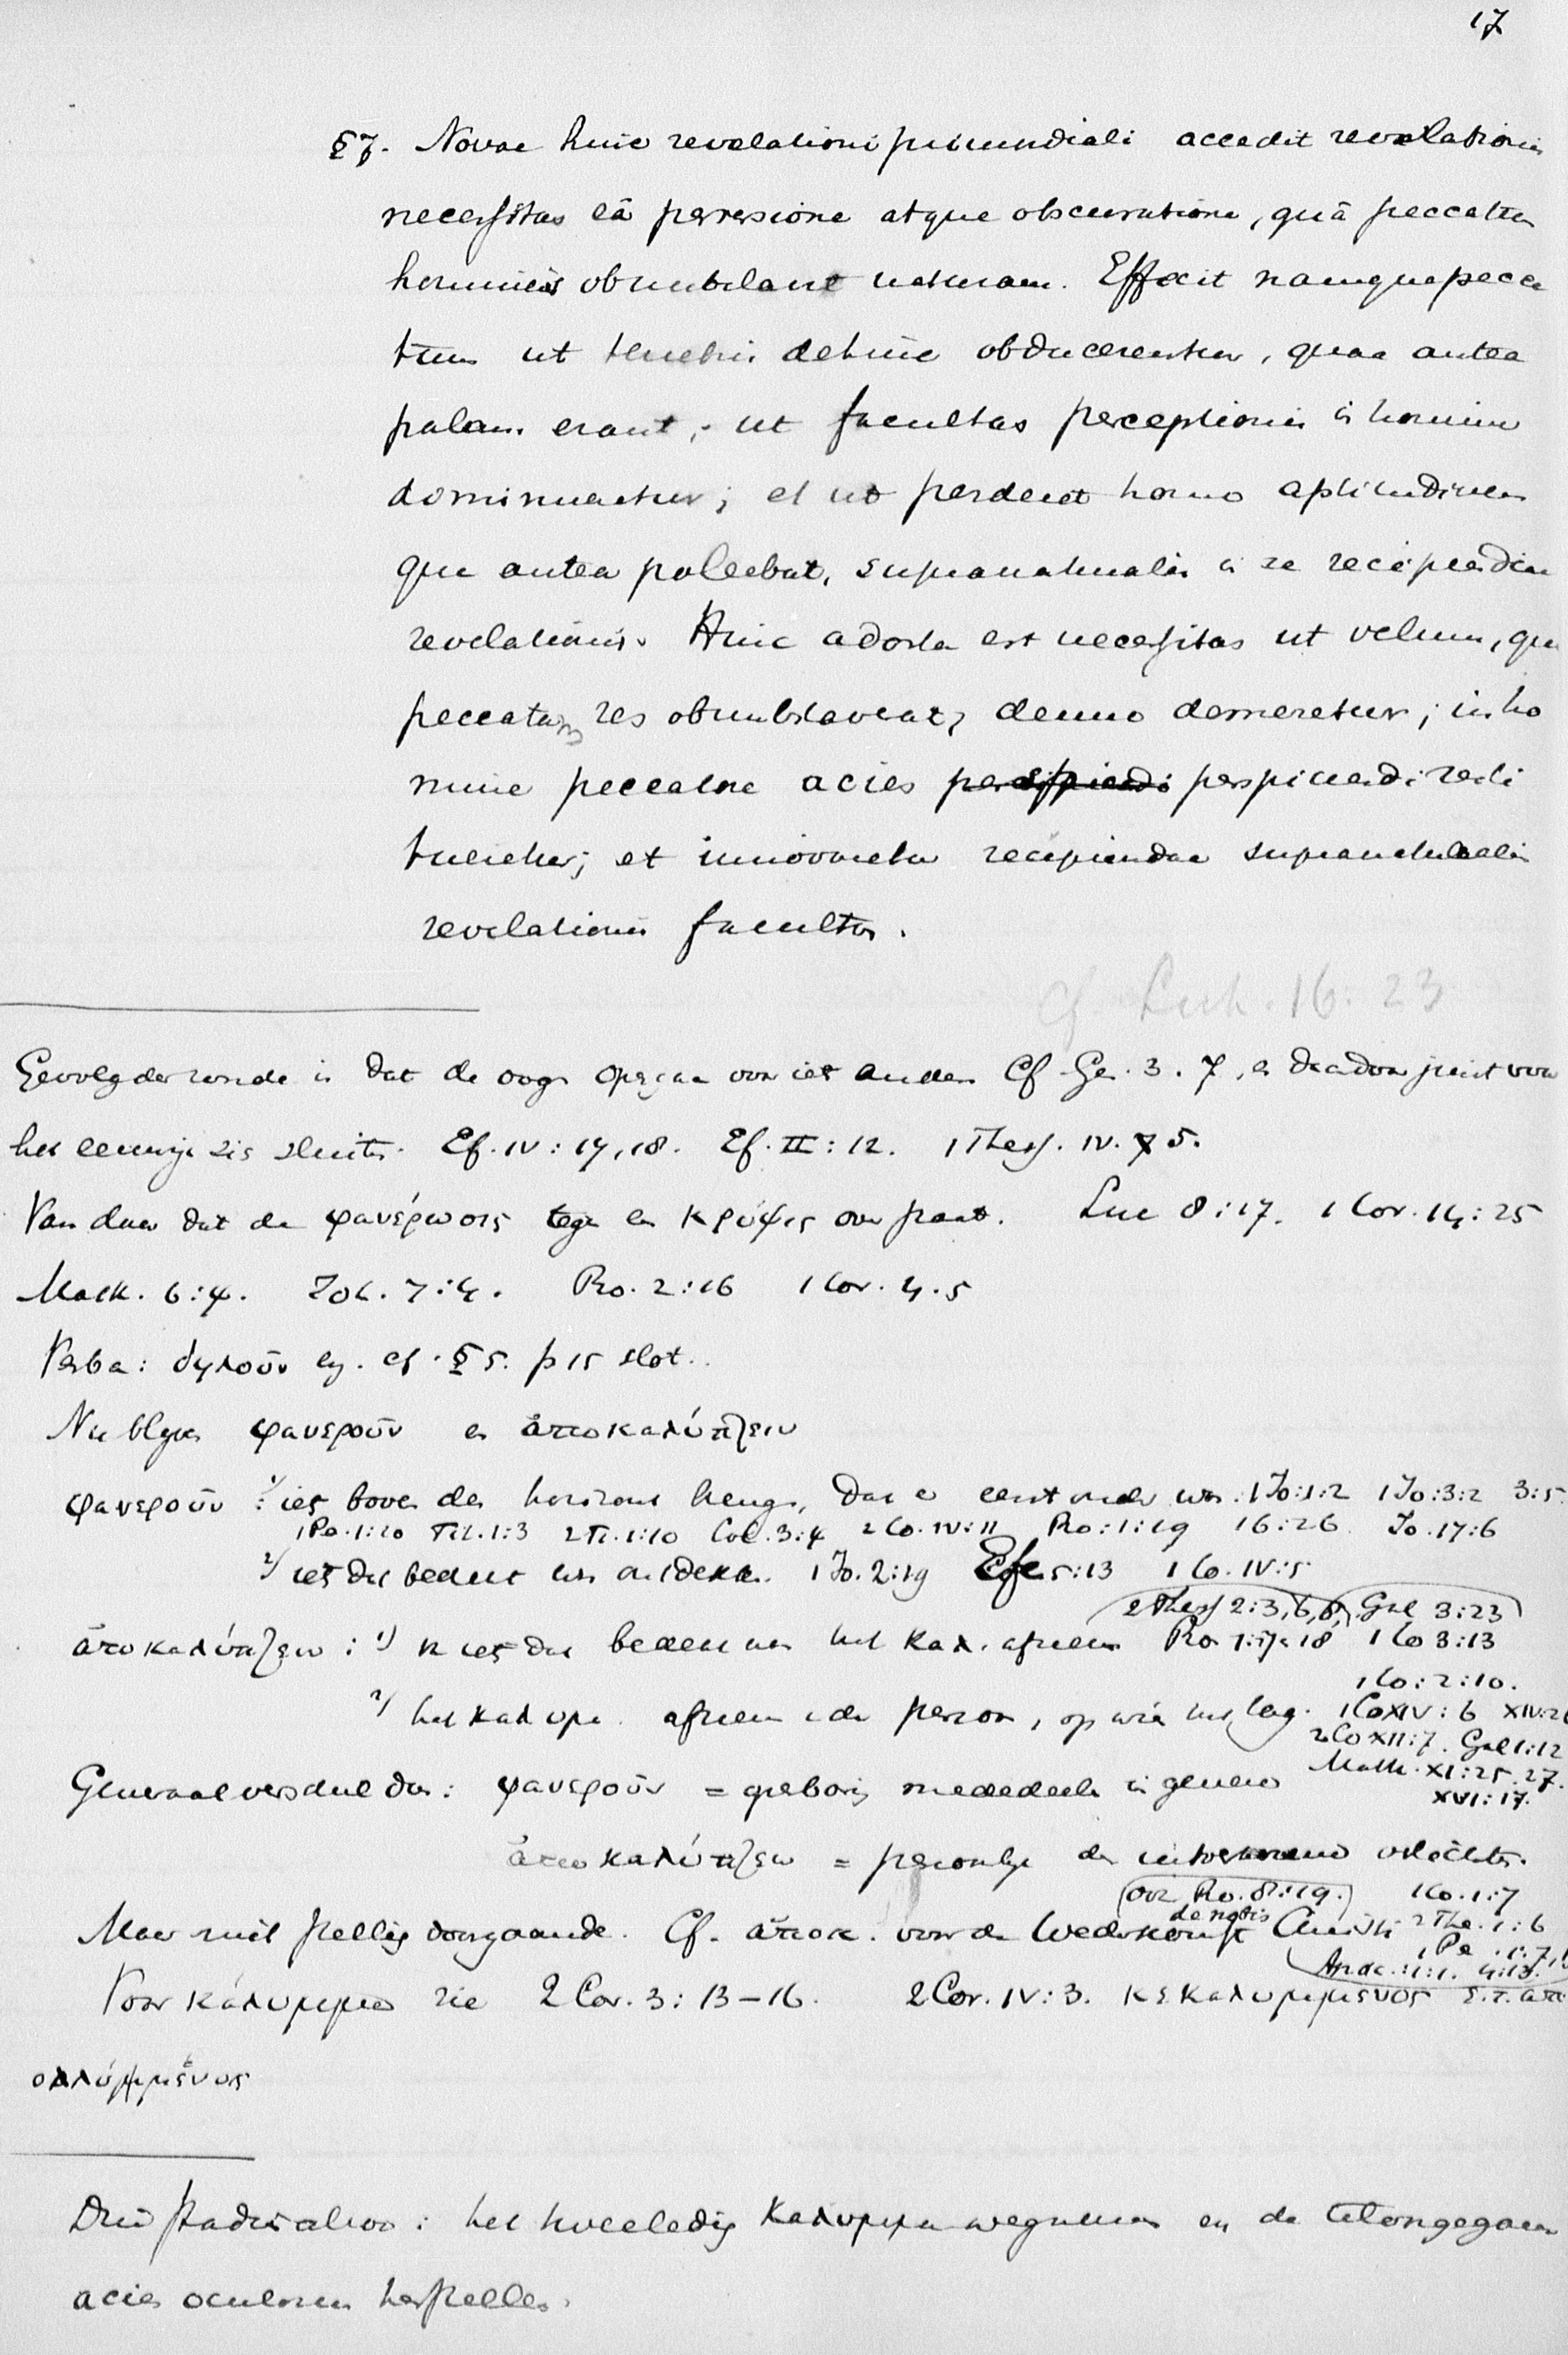 17
§7. Novae huic revelationi primordiali accedit revelationis
necessitas eâ perversione atque obscuratione, quâ peccatum
hominis obnubilavit naturam. Effecit namque pecca
tum ut tenebris dehinc obducerentur, quae antea
palam erant; ut facultas perceptionis in homine
dominueretur; et ut perderet homo aptitudinem
qua antea pollebat, supranaturalis in se recipiendae
revelationis. Hinc adorta est necessitas ut velum, quo
peccatum res obumbraverat, denuo demeretur; in ho
mine peccatore acies perspiciendi resti
tueretur; et innovaretur recipiendae supranaturalis
revelationis facultas.
Cf. Luk. 16:23
Gevolg der zonde is dat de oogen opengaan voor iets anders Cf. Ge. 3.7, en daardoor juist voor
het eeuwige zich sluiten. Ef. IV:17,18. Ef. II:12. 1 Thess. IV. 5.
Van daar dat de φανέρωσις tegen en κρύψις over staat. Luc 8:17. 1 Cor. 14:25
Matth. 6:4. Joh. 7:4. Ro. 2:16 1 Cor. 4.5
Verba: δηλοῦν enz. cf. §5. p 15 slot..
Nu blijven φανεροῦν en ἀποκαλύπτειν
φανεροῦν : 1/ iets boven den horizont brengen, dat er eerst onder was. 1 Jo:1:2 1 Jo:3:2 3:5
1 Pe.1:20 Tit.1:3 2 Ti.1:10 Col.3:4 2 Co.IV:11 Ro:1:19 16:26. Jo.17:6
2/ iets dat bedekt was ontdekken. 1 Jo. 2:19 Efe 5:13 1 Co. IV:5
2 Thess 2:3,6,8. Gal 3:23
ἀποκαλύπτειν : 1) van iets dat bedekt was het καλ. afnemen Ro 1:17 18 1 Co 3:13
1 Co:2:10.
2/ het καλυμμ. afnemen in den persoon, op wien het lag. 1 Co XIV:6 XIV:26
2 Co XII:7. Gal 1:12
Generaal verschil dus: φανεροῦν = openbaring mededeelen in genere Matth. XI:25.27.
XVI:17.
ἀποκαλύπτειν = persoonlijk den verlichten.
(ook Ro. 8:19.) 1 Co.1:7
Maar niet stellig doorgaande. Cf. ἀποκ. voor de Wederkomst Christi 2 The. 1:6
1 Pe. 1:7,
4:13.
Voor κάλυμμα zie 2 Cor. 3:13–16. 2 Cor. IV:3. κεκαλυμμενος ε.τ. απ
ολλύμμενοις
Drie stadia alzoo: het καλυμμα wegnemen en de teloorgegane
acies oculorum herstellen.